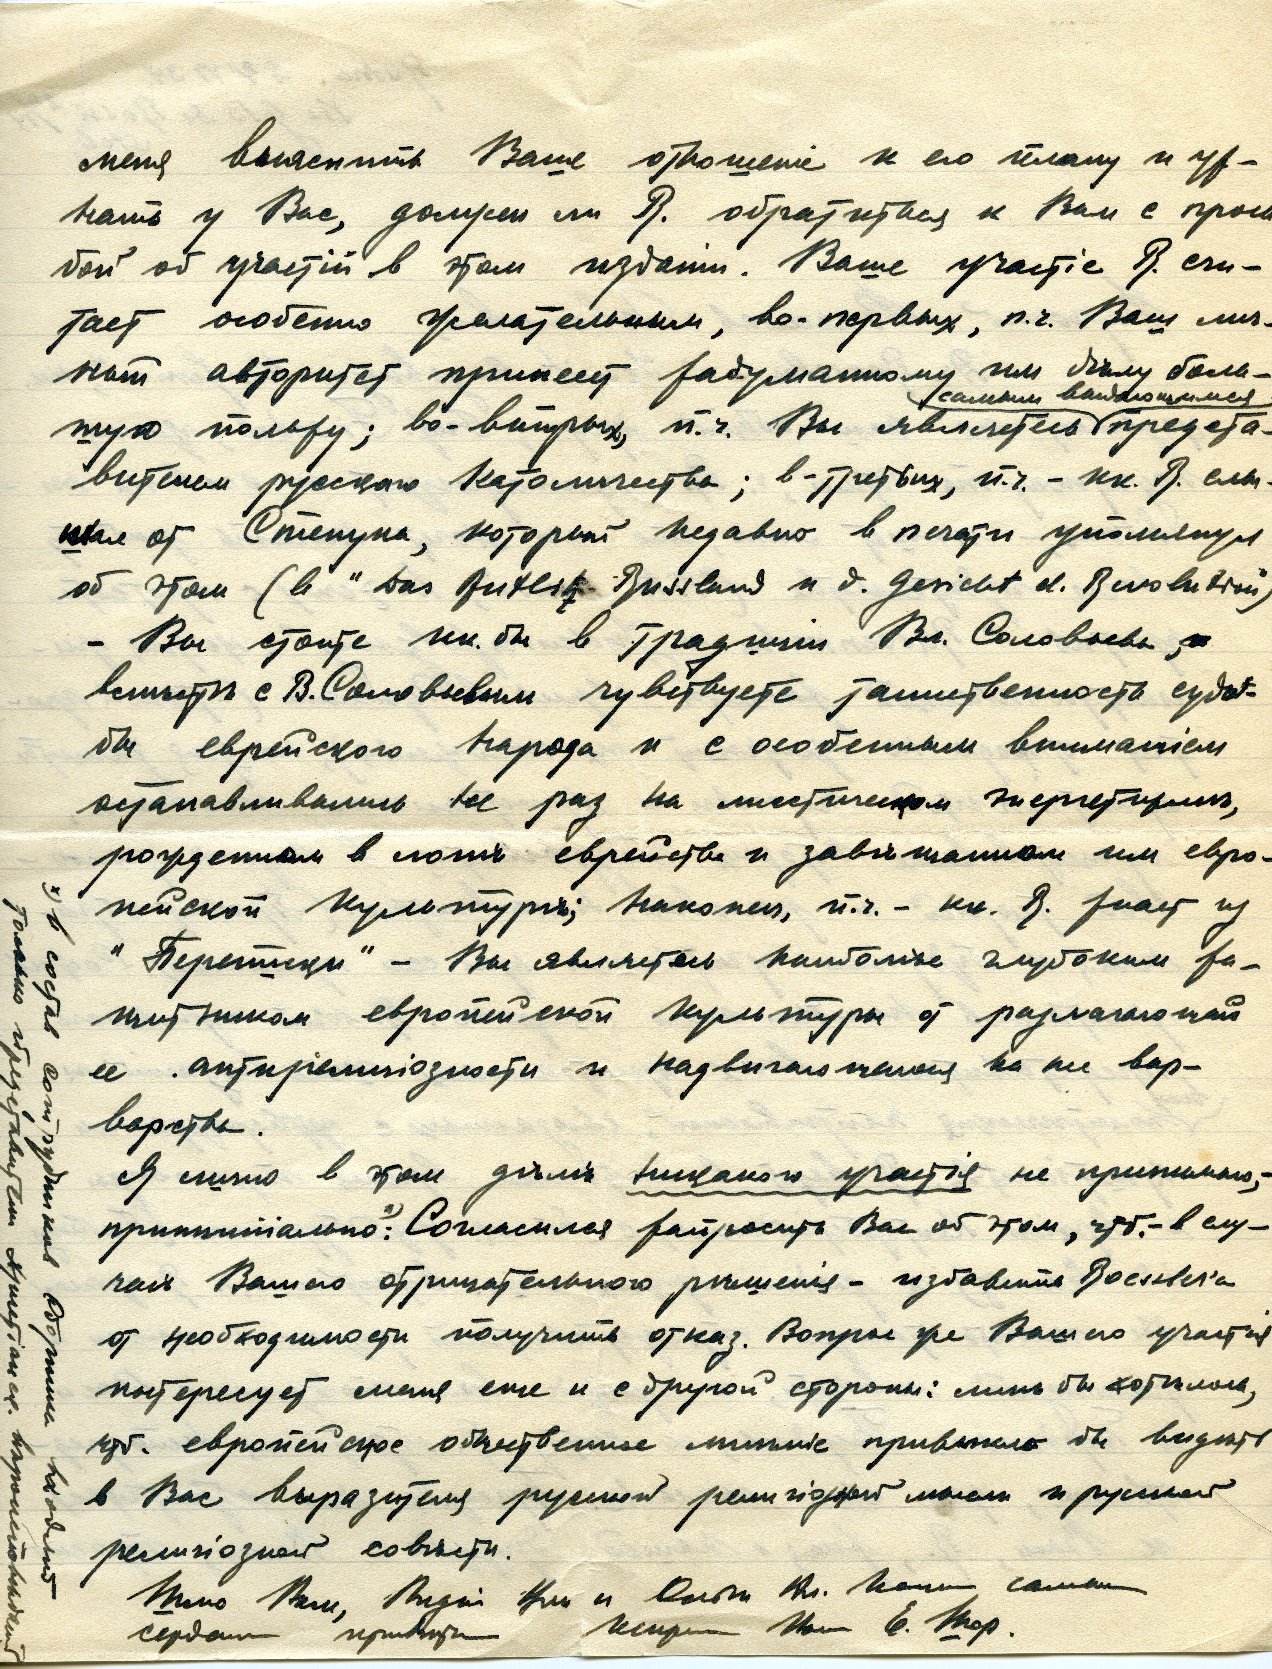 меня выяснить Ваше отношенiе к его плану и уз-
нать у Вас, должен ли R. обратиться к Вам с прось
бой об участiи в этом изданiи. Ваше участiе R. счи-
тает особенно желательным, во-первых, п.ч. Ваш лич-
ный авторитет принесет задуманному им дѣлу боль-
самым выдающимся
шую пользу; во-вторых, п.ч. Вы являетесь предста-
вителем русского католичества; в-третьих, п.ч. - кк. R. слы-
шал от Степуна, который недавно в печати упомянул
об этом (в "Das Antlitz Russland u d. Gesicht d. Revolution)
- Вы стоите кк. бы в традицiи Вл. Соловьева,
вмѣстѣ с В. Соловьевым чувствуете таинственность судь-
бы еврейского народа и с особенным вниманiем
останавливались не раз на мистическом энергетизмѣ,
рожденном в лонѣ еврейства и завѣщанном им евро-
пейской культурѣ; наконец, п.ч. - кк. R. знает из
"Переписки" - Вы являетесь наиболѣе глубоким за-
щитником европейской культуры от разлагающей
ее антирелигiозности и надвигающегося на нее вар-
варства.
Я лично в этом дѣлѣ никакого участiя не принимаю,-
принципiально x): Согласился запросить Вас об этом, чтб.- в слу-
чаѣ Вашего отрицательного рѣшенiя - избавить Roessler'а
от необходимости получить отказ. Вопрос же Вашего участiя
интересует меня еще и с другой стороны: мнѣ бы хотѣлось,
чтб. европейское общественное мнѣнiе привыкло бы видѣть
в Вас выразителя русской религiозной мысли и русской
религiозной совѣсти.
Шлю Вам, и Ольгѣ Ал. наши самые
сердечные привѣты Искренно Ваш Е. Шор.
x) В состав сотрудников сборника входят
только представители христiанск. вѣроисповѣданiй